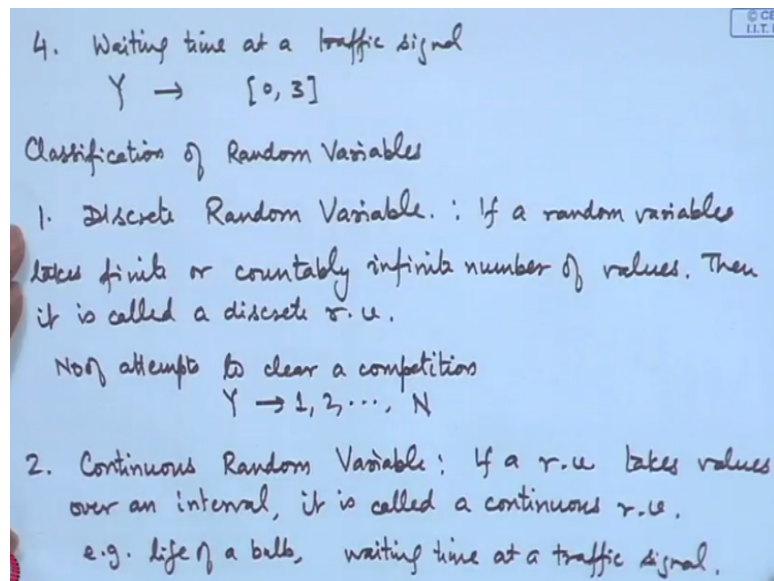 © CE
I.I.T. 
4. Waiting time at a traffic signal
Y → [0, 3]
Classification of Random Variables
1. Discrete Random Variable. : If a random variables
takes finite or countably infinite number of values. Then
it is called a discrete r.u.
No of attempts to clear a competition
Y → 1, 2, ..., N
2. Continuous Random Variable : If a r.u takes values
over an interval, it is called a continuous r.u.
e.g. life of a bulb, waiting time at a traffic signal.